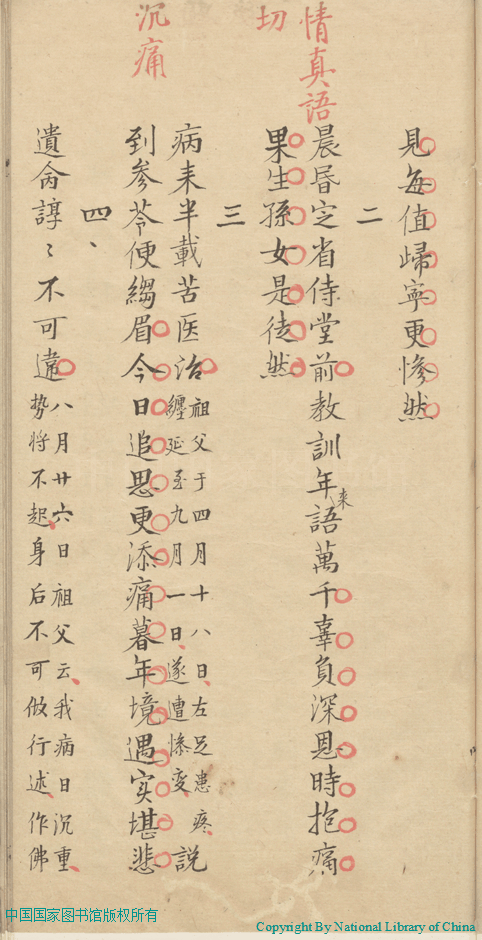 見每值歸寧更慘然
二
情真語
切
晨昏定省侍堂前教訓年来語萬千辜負深恩時抱痛
果生孫女是徒然
三
沉痛
病来半載苦医治祖父于四月十八日左足患疼纏延至九月一日遂遭慘变說
到参苓便縐眉今日追思更添痛暮年境遇实堪悲
四、
遺命諄〻不可違八月廿六日祖父云我病日沉重势将不起身后不可做行述作佛
中国国家图书馆版权所有
Copyright By National Library of China